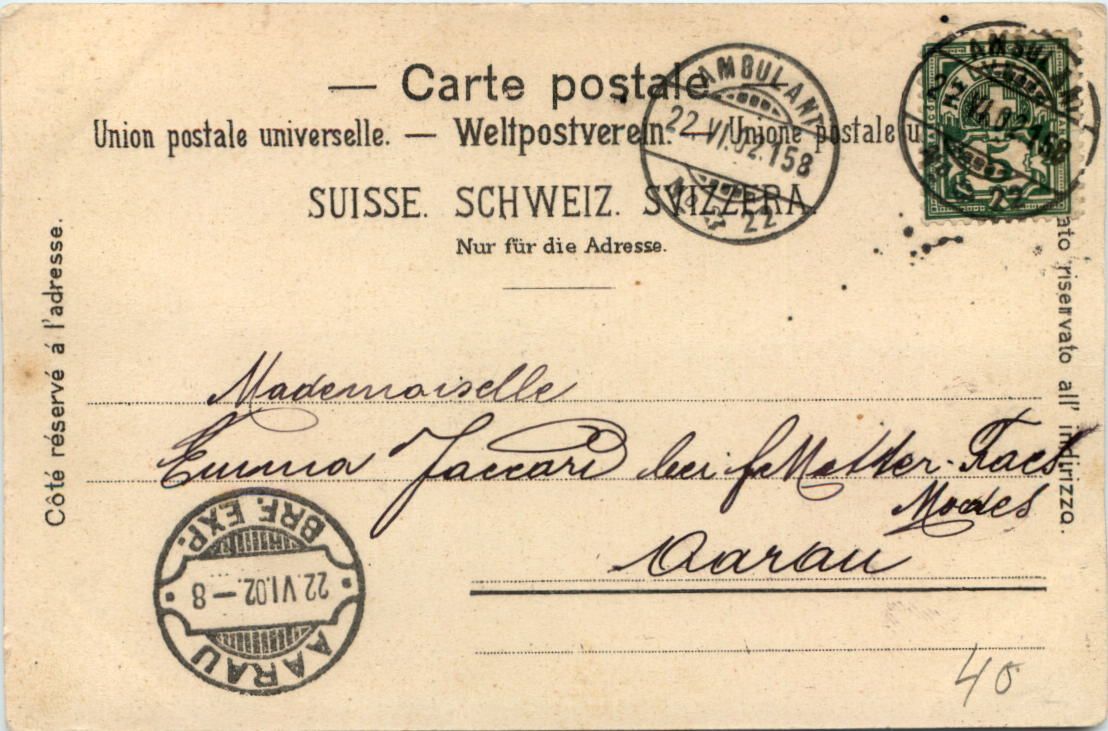 — Carte postale
Union postale universelle. — Weltpostverein. — Unione postale u
SUISSE. SCHWEIZ. SVIZZERA.
Nur für die Adresse.
Côté réservé á l'adresse.
ato riservato all' indirizzo.
AMBULANT
22.VI.02.158
No 22
AMBULANT
VI.02.158
No 22
Mademoiselle
Emma Jaccard bei
Modes
Aarau
AARAU
22.VI.02.—8
BRF. EXP.
40